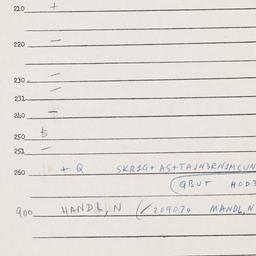 210 +
220 —
230 —
231 —
240 —
250 $
251 —
+ Q SKR1G+AS+TAJN3RN1MCUN
260
QBUT HOD3
900 HANDL, N (/209070 MANDL, N